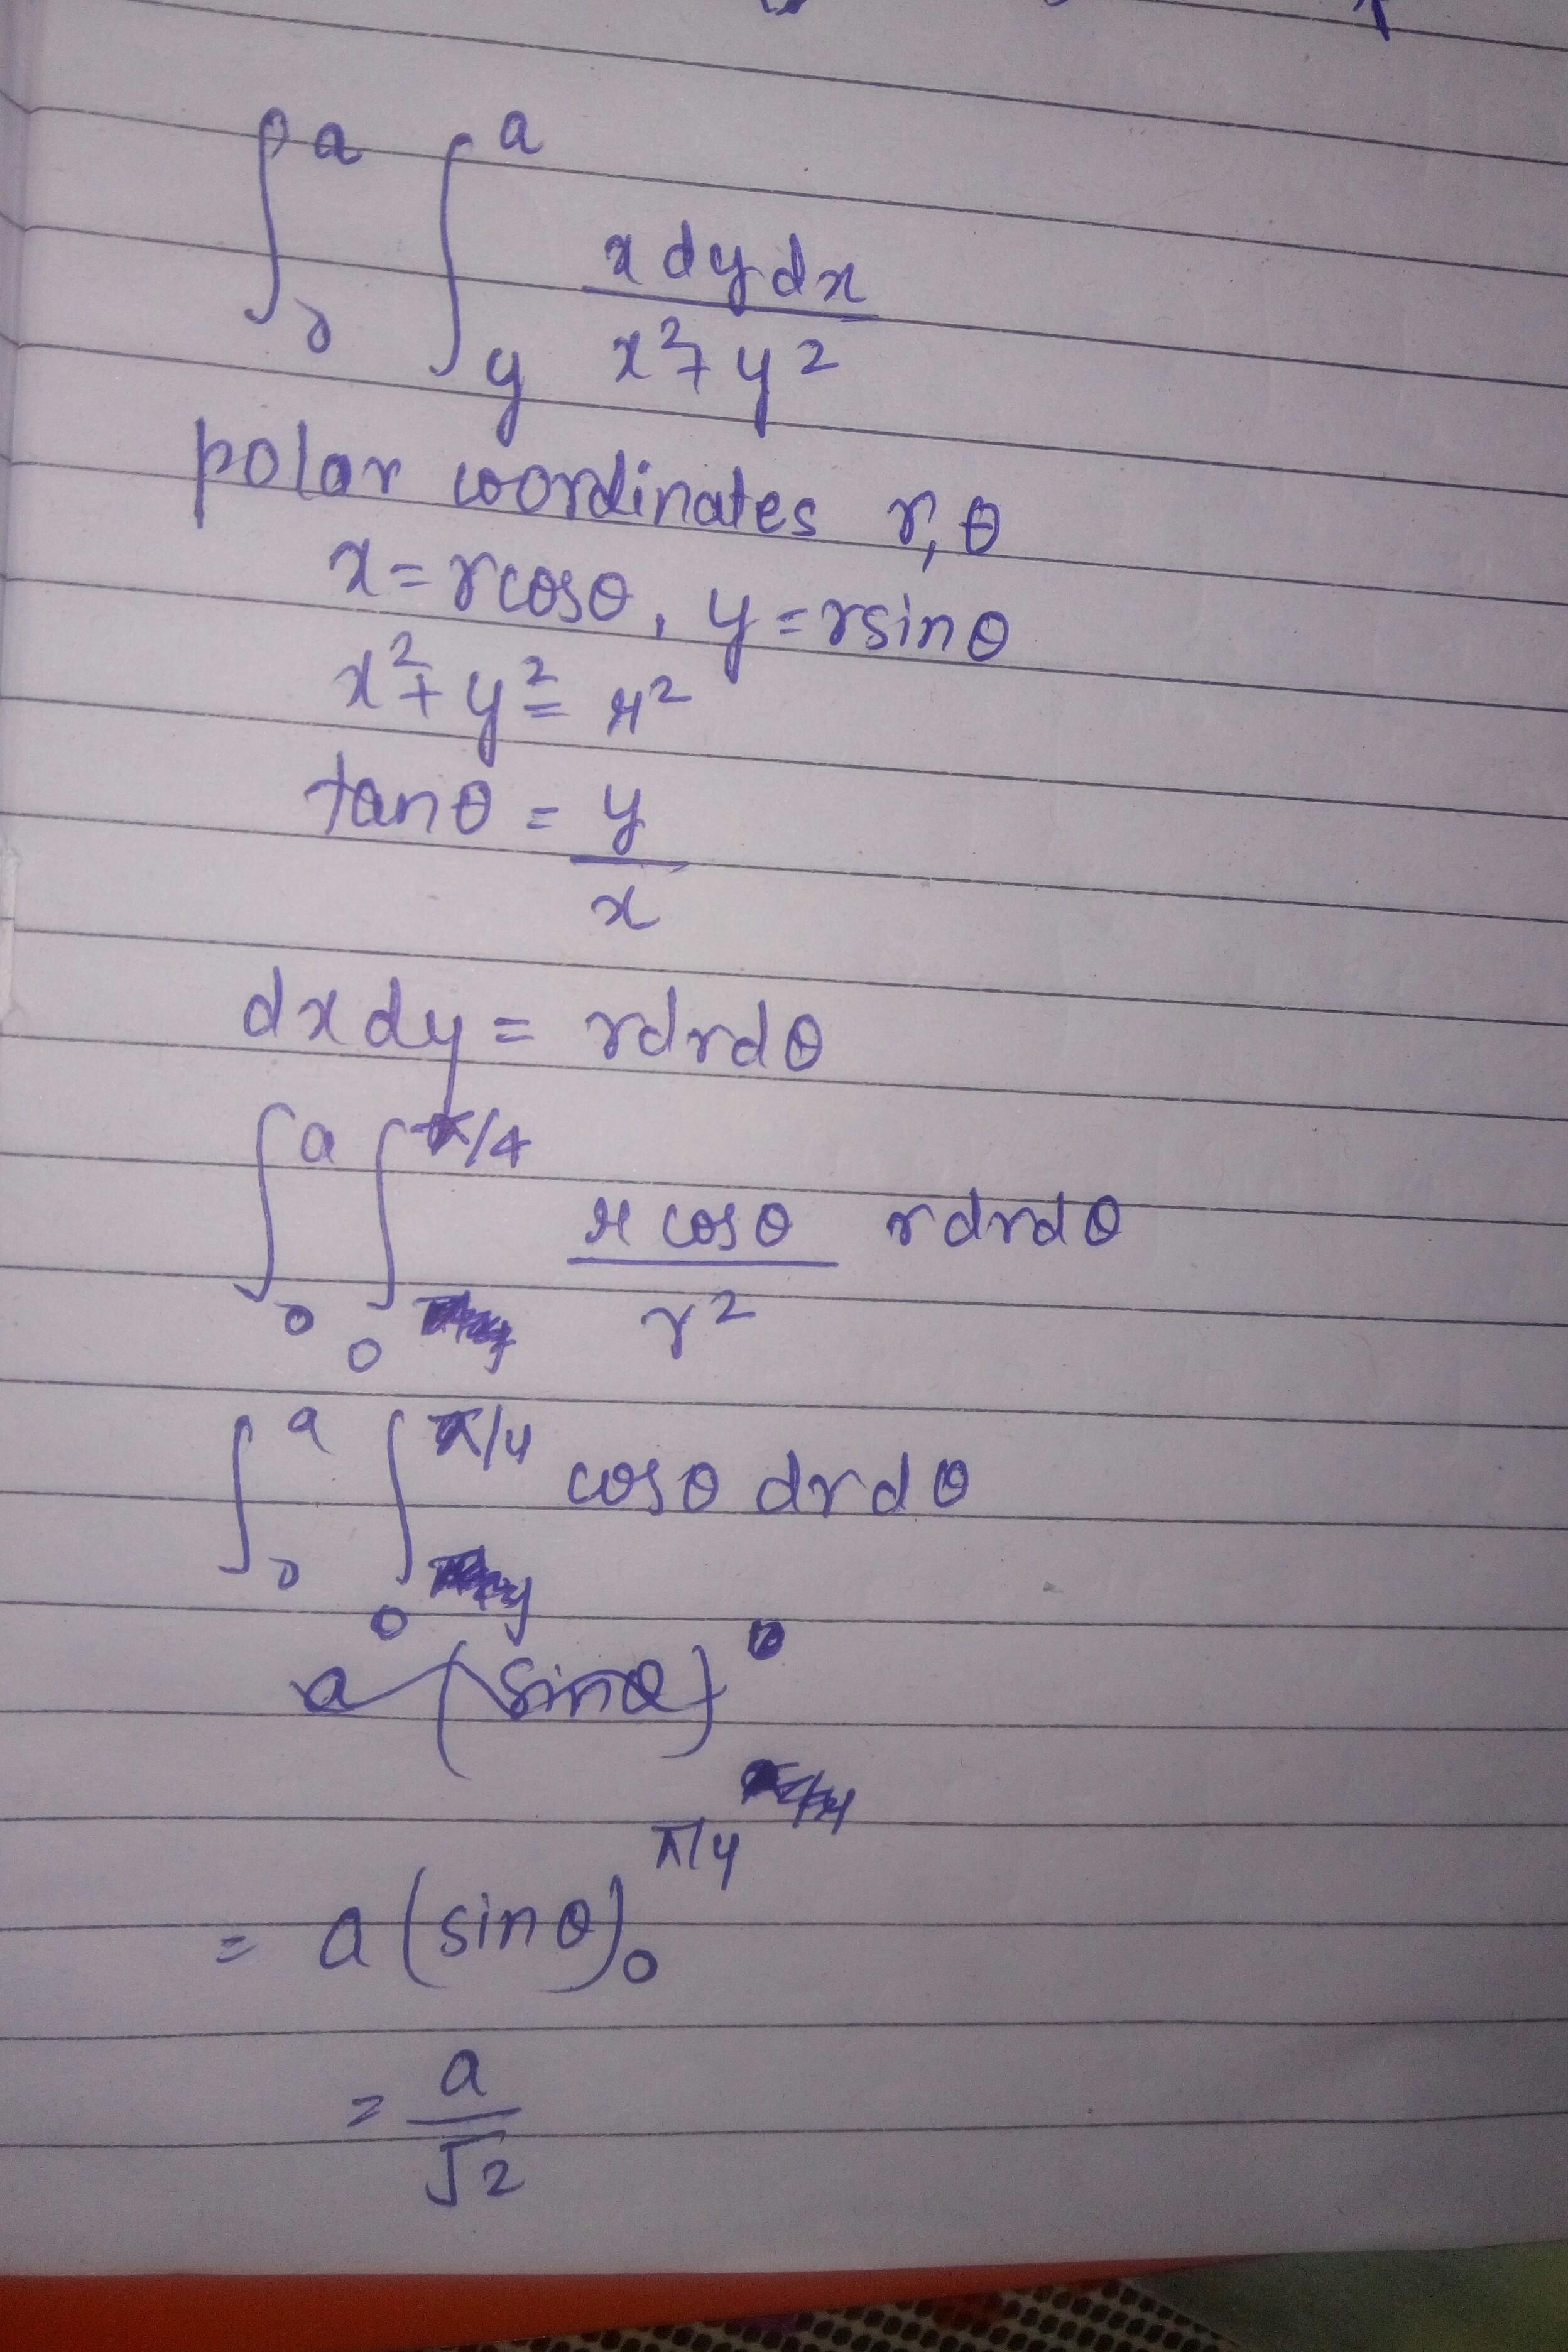 ∫₀ᵃ ∫ᵧᵃ x dy dx / x² + y²
polar coordinates r, θ
x = r cosθ, y = r sinθ
x² + y² = r²
tanθ = y / x
dx dy = r dr dθ
∫₀ᵃ ∫₀^π/4 r cosθ / r² r dr dθ
∫₀ᵃ ∫₀^π/4 cosθ dr dθ
a (sinθ)⁰
= a (sinθ)₀^π/4
= a / √2